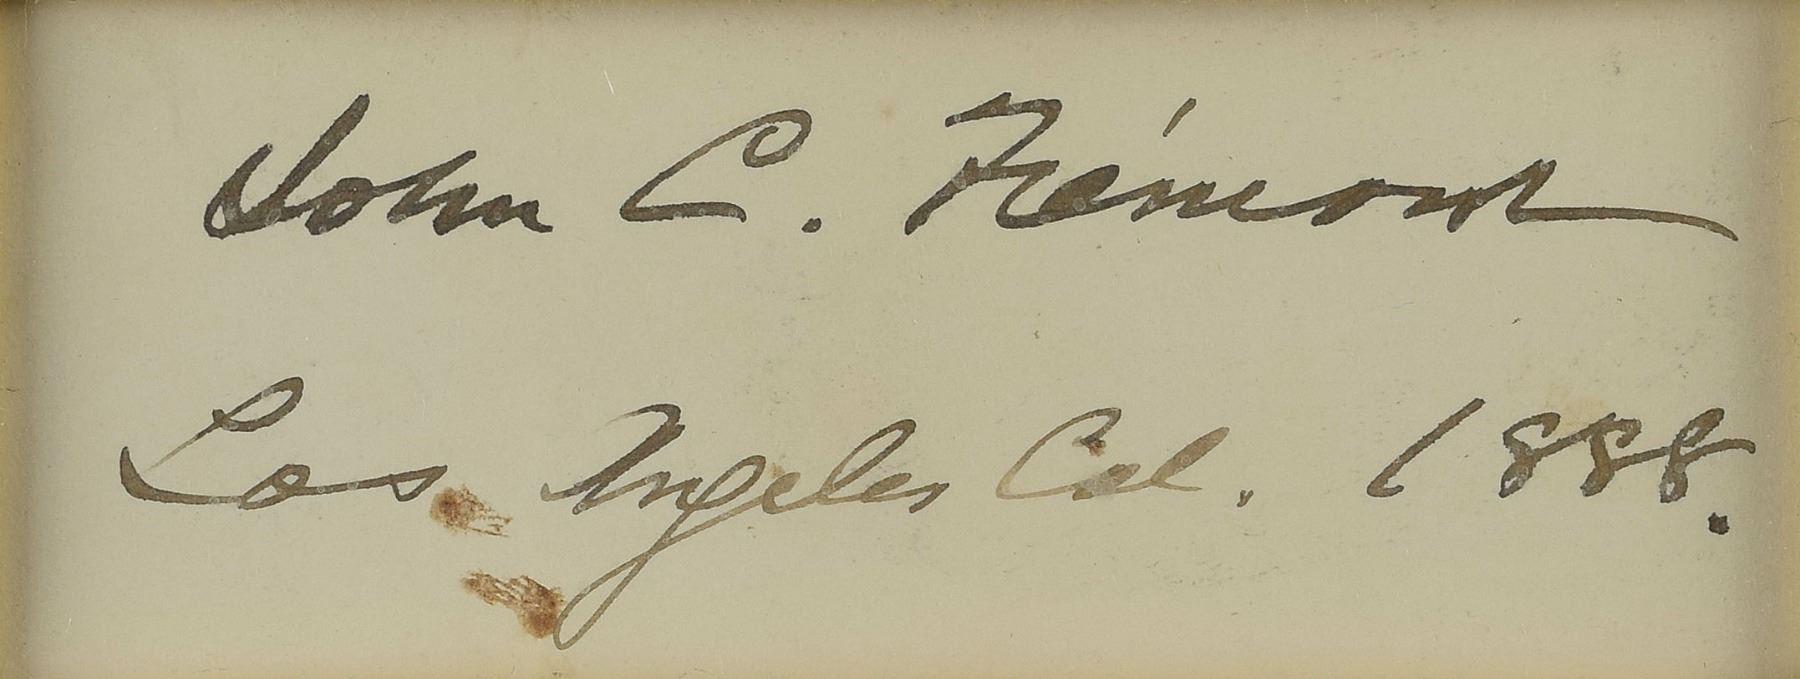 John C. Frémont
Los Angeles Cal. 1888.